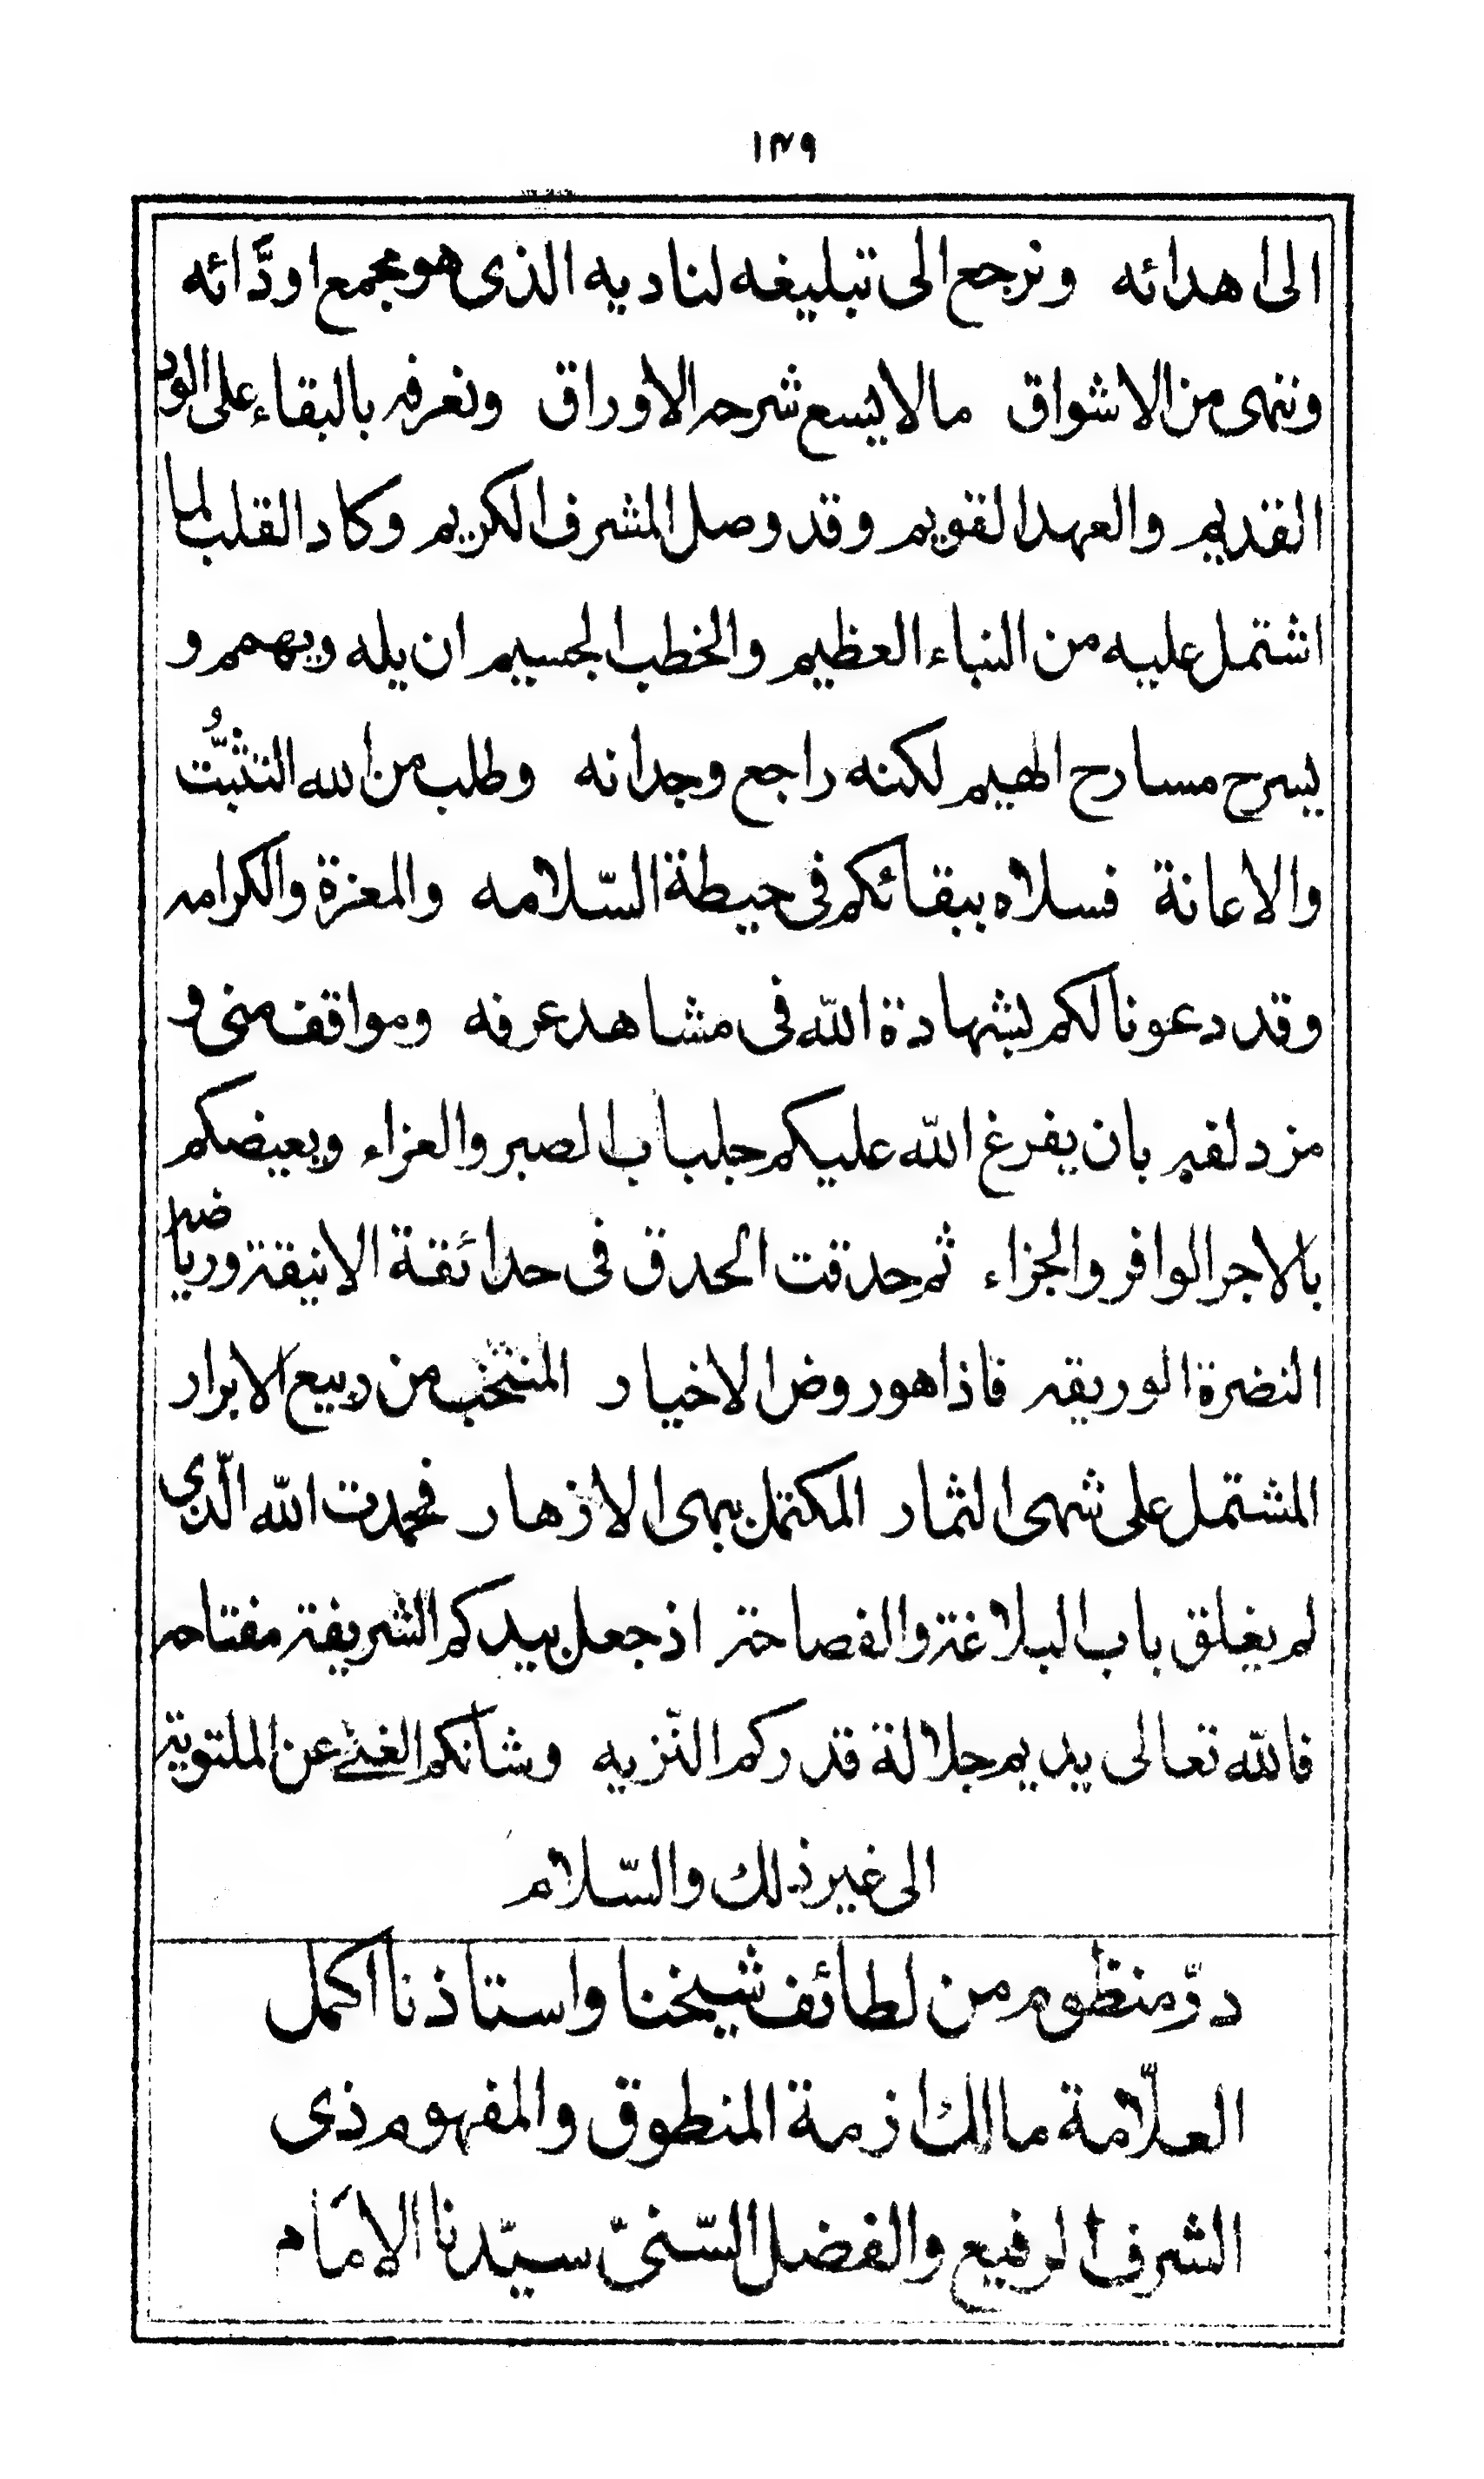 ١٣٩
الى اهدائه ونرجع الى تبليغه لناديه الذى هو مجمع اودّائه
وننهى من الاشواق مالا يسع شرحه الاوراق ونعرفه بالبقاء على الود
القديم والعهد القويم وقد وصل المشرف الكريم وكاد القلب لما
اشتمل عليه من النباء العظيم والخطب الجسيم ان يله ويهمم و
يسرح مسارح الهيم لكنه راجع وجدانه وطلب من الله التثبُّت
والاعانة فسلاه ببقائكم فى حيطة السّلامه والمعزة والكرامه
وقد دعونا لكم بشهادة الله فى مشاهد عرفه ومواقف منى و
مزدلفه بان يفرغ الله عليكم جلباب الصبر والعزاء ويعيضكم
بالاجر الوافر والجزاء ثم حدقت الحدق فى حدائقة الانيقة ورياضه
النضرة الوريقه فاذا هو روض الاخيار المنتخب من ربيع الابرار
المشتمل على شهى الثمار المكتمل ببهى الازهار فحمدت الله الّذى
لم يغلق باب البلاغة والفصاحة اذ جعل بيدكم الشريفة مفتاحه
فالله تعالى يديم جلالة قدركم النّزيه وشانكم الغنى عن الملتويه
الى غير ذلك والسّلام
درّ منظوم من لطائف شيخنا واستاذنا اكمل
العلّامة مالك ازمة المنطوق والمفهوم ذى
الشرف الرفيع والفضل السّنىّ سيّدنا الامام